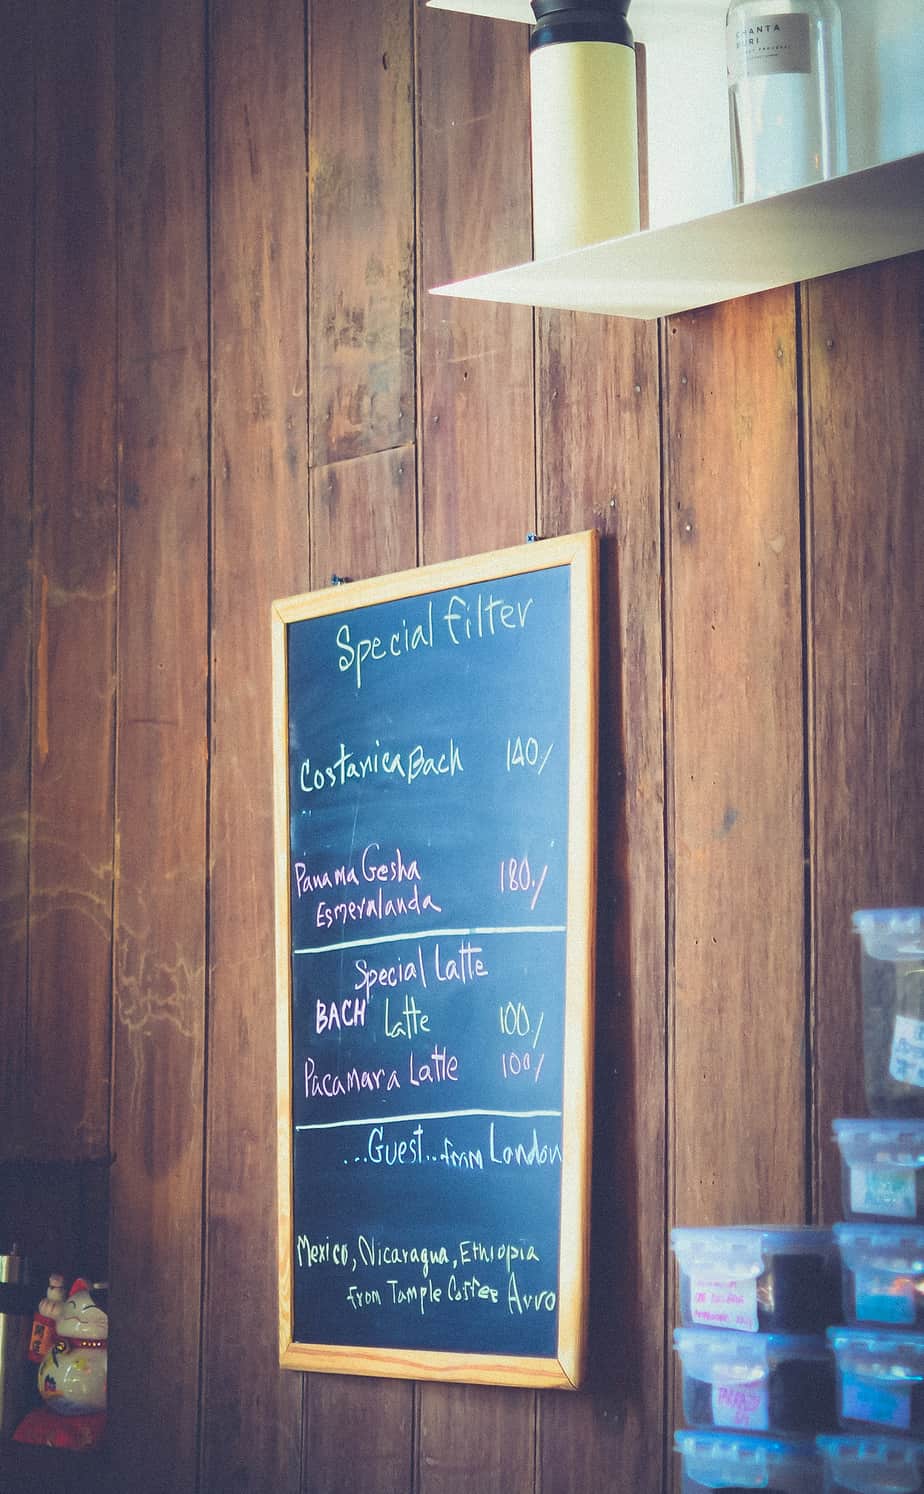 Special Filter
Costarica Bach 140./
Panama Gesha 180./
Esmeralanda
Special Latte
BACH Latte 100./
Pacamara Latte 100./
...Guest...from London
Mexico, Nicaragua, Ethiopia
from Tample Coffee Avro